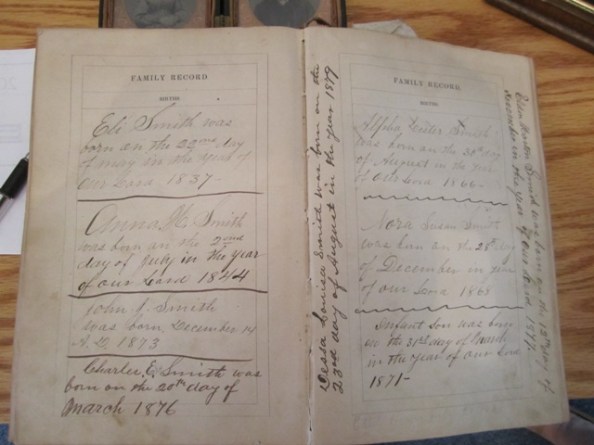 FAMILY RECORD
BIRTHS
Eli Smith was
born on the 22nd day
of may in the year of
our Lord 1837-
Anna H. Smith
was born on the 2nd
day of July in the year
of our Lord 1844
John J. Smith
was born December 14
A.D. 1873
Charles E. Smith was
born on the 20th day of
March 1876
Dessa Louisa Smith was born on the
23rd day of August in the year 1879
FAMILY RECORD
BIRTHS
Smith
was born on the day
of August in the year
of our Lord 1866-
Nora Susan Smith
was born on the 28th day
of December in year
of our Lord 1868
Infant Son was born
on the 31st day of March
in the year of our Lord
1871-
Smith was born on the 18th day of
in the year of our Lord